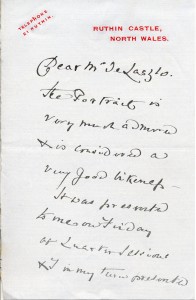 TELEPHONE
21 RUTHIN.
RUTHIN CASTLE,
NORTH WALES.
Dear Mr de Laszlo.
The Portrait is
very much admired
& is considered a
very good likeness –
It was presented
to me on Friday
at Quarter Sessions
& I in my turn presented